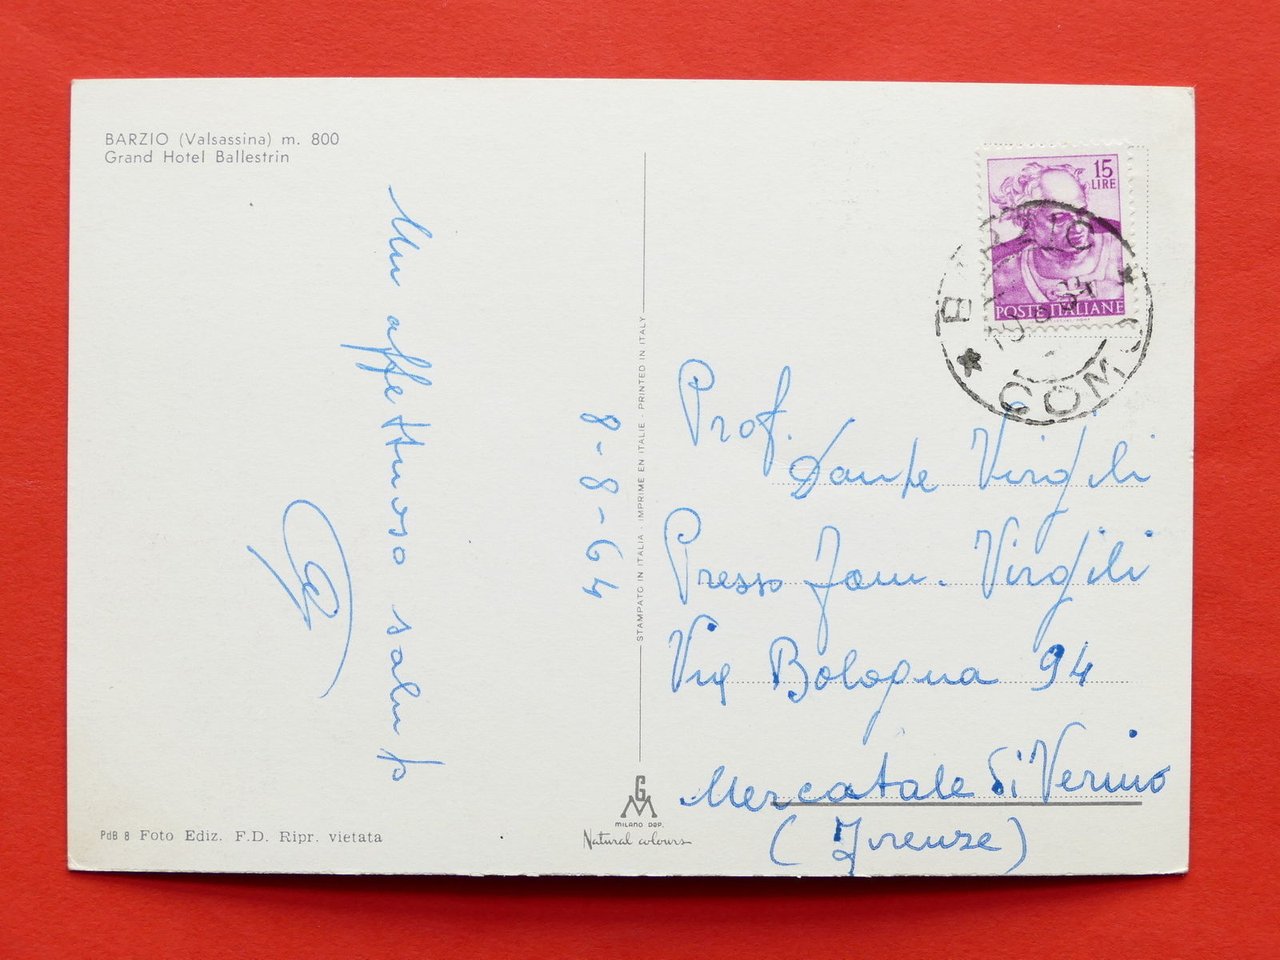 BARZIO (Valsassina) m. 800
Grand Hotel Ballestrin
Un affettuoso saluto
8-8-64
STAMPATO IN ITALIA - IMPRIME EN ITALIE - PRINTED IN ITALY
15
LIRE
POSTE ITALIANE
COM
Prof.
Dante Virgili
Presso Fam. Virgili
Via Bologna 94
Mercatale di Vernio
(Firenze)
GM
MILANO DEP.
Natural colours
PdB 8 Foto Ediz. F.D. Ripr. vietata